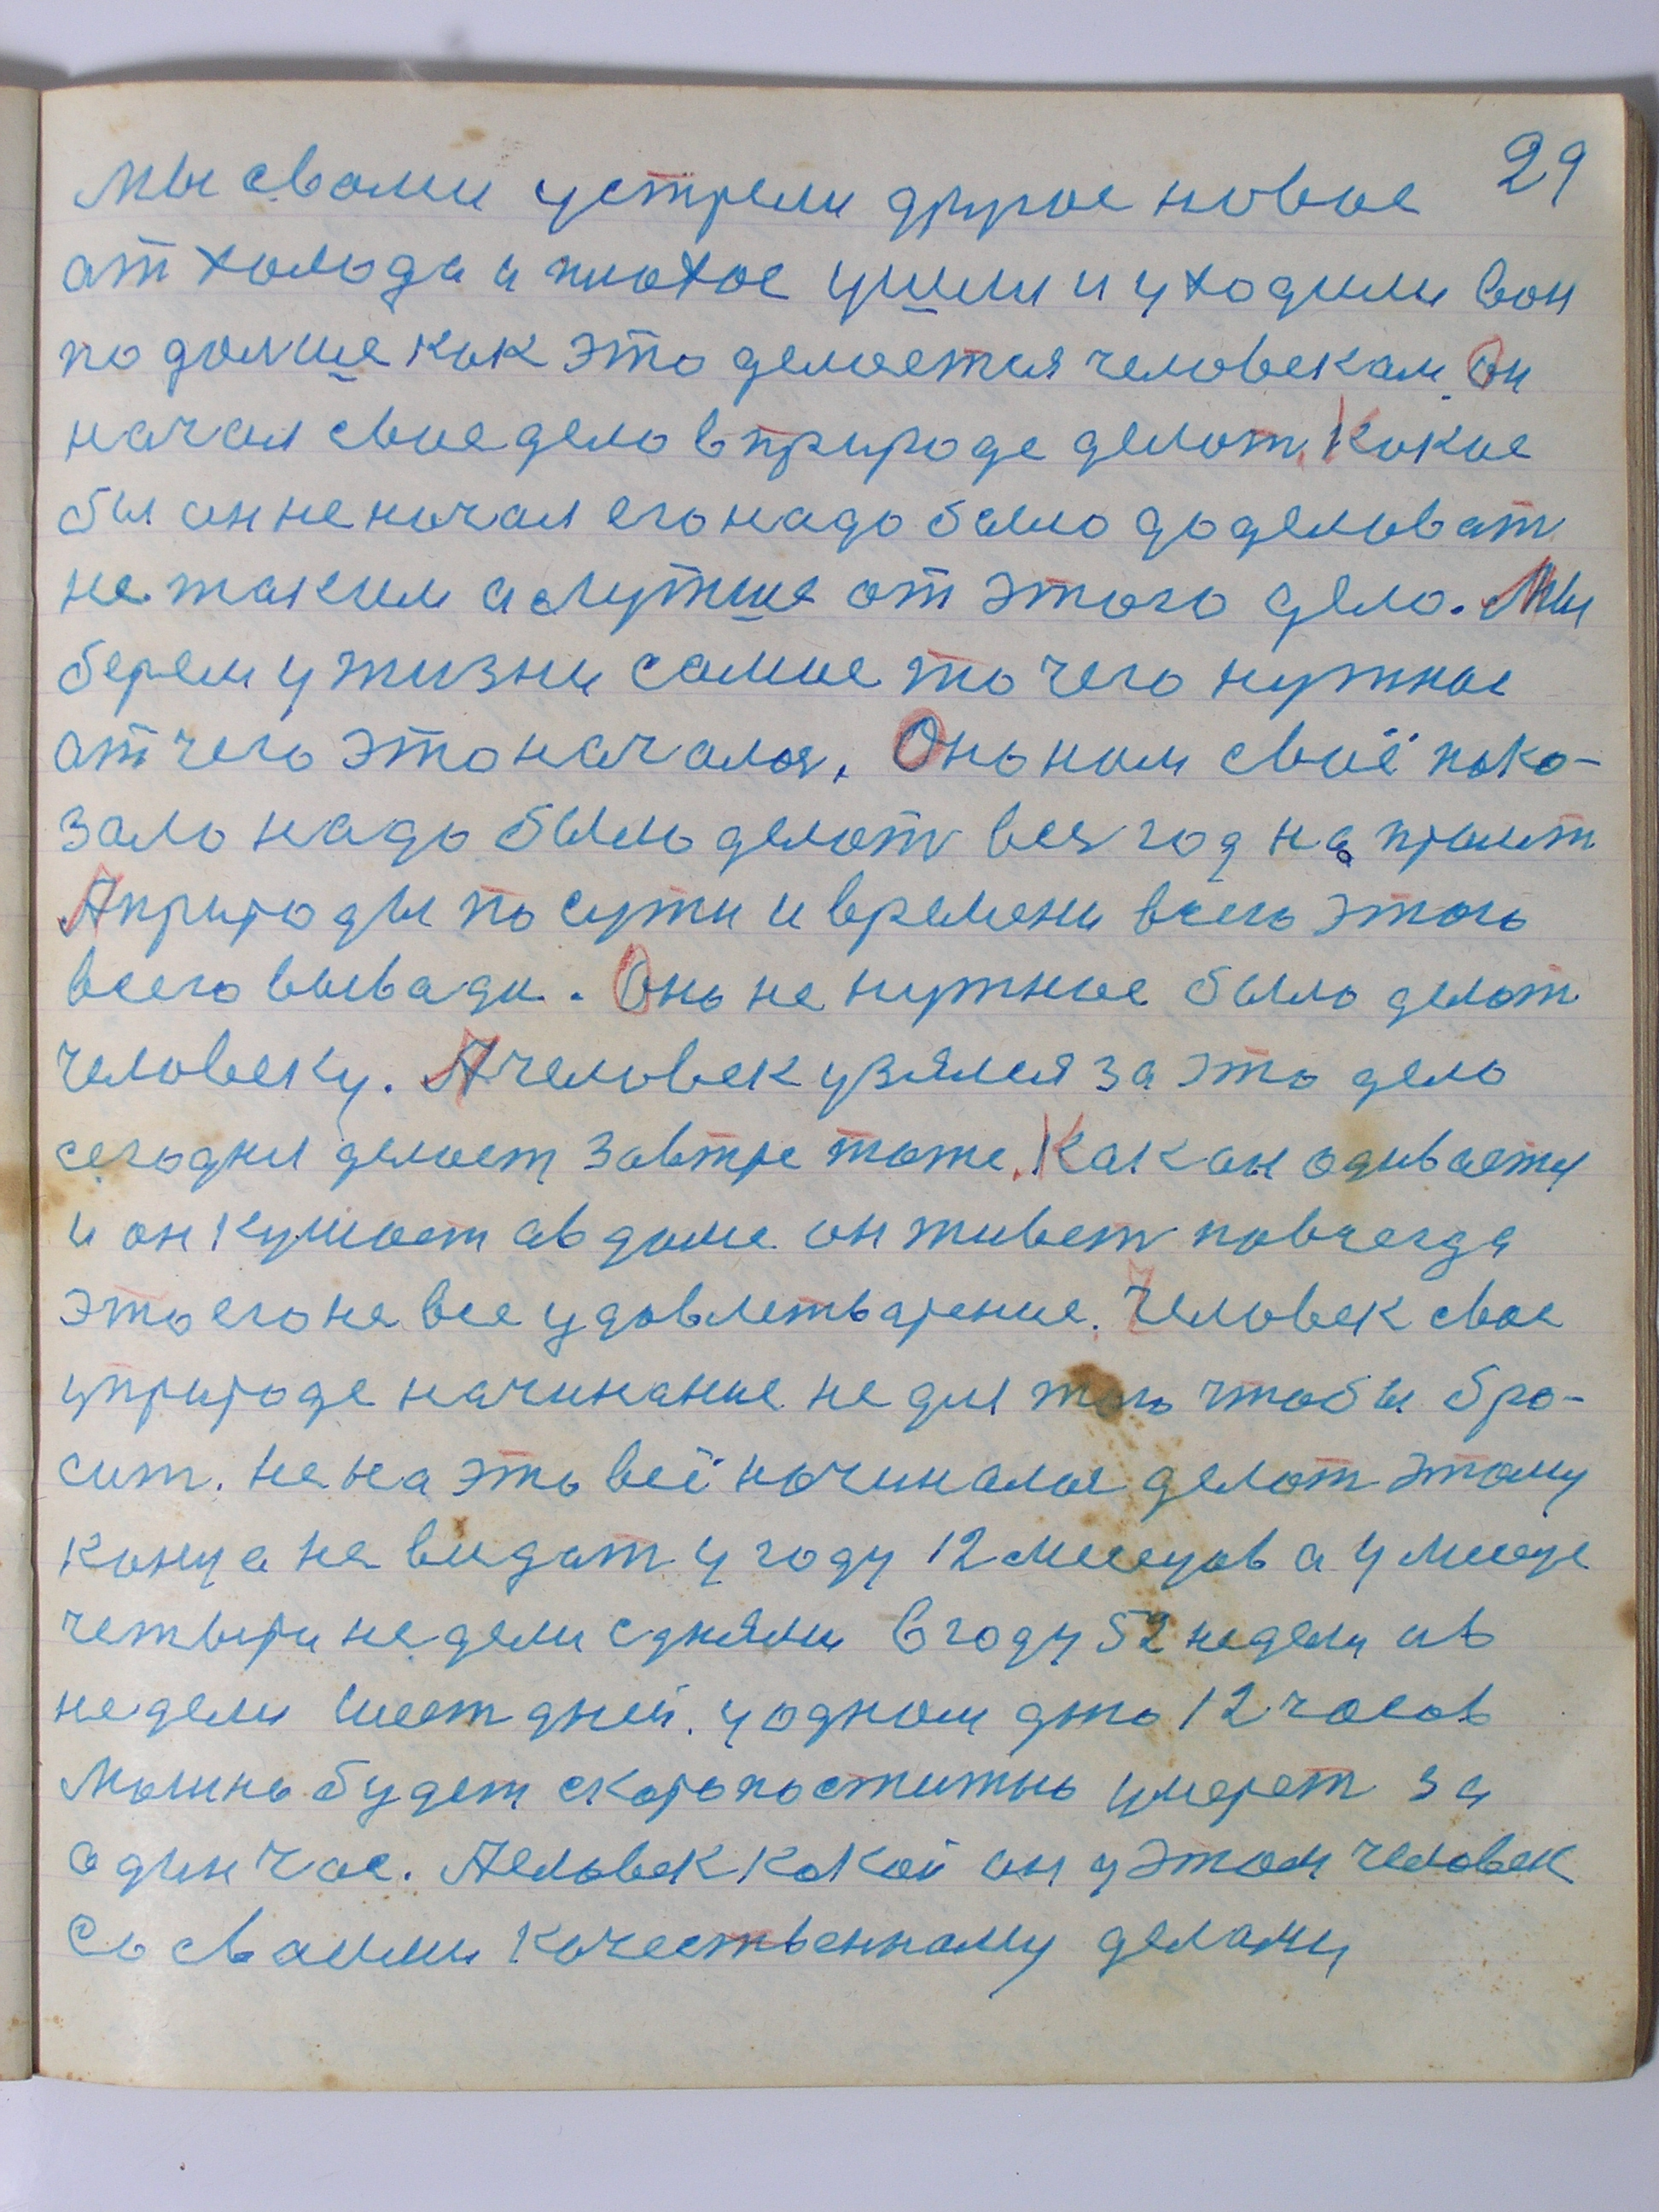 29
Мы свами устрели другое новое
от холода и плохое ушли и уходили вон
по дольше как это делается человекам. Он
начал свое дело в природе делат. Какое
бы он не начал его надо было доделоват
не таким а лутше от этого дело. Мы
берем у жизни самое то чего нужное
от чего это началоя. Оно нам своё пока-
зало надо было делат вез год на прамт
А природы по сути и времени всего этого
всего вывади. Оно не нужное было делат
человеку. А человек узялся за это дело
сегодня делает завтре тоже. Как он одивается
и он кушает а в доме он живет повсегда
это его не все удовлетварение. Человек свое
уприроде начинание не для того чтобы бро-
сит. не на это всё начиналое делат этому
конца не видат у году 12 месецов а у месеце
четыри недели сднями в году 52 недели а в
недели шест дней. у одном дню 12 часов
Можно будет скоропостижно умерет за
один час. Человек какой он у этом человек
со своими качественному деламы